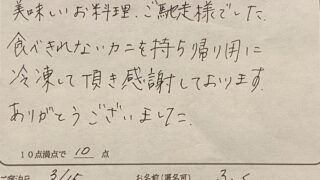 美味しいお料理、ご馳走様でした。
食べきれないカニを持ち帰り用に
冷凍して頂き感謝しております。
ありがとうございました。
10点満点で 10 点
ご宿泊日 3/15 お名前(匿名可)